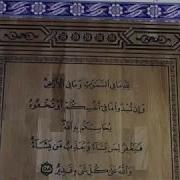 لله ما في السموت وما في الأرض
وإن تبدوا ما في أنفسكم أو تخفوه
يحاسبكم به الله
فيغفر لمن يشاء ويعذب من يشاء
والله على كل شيء قدير